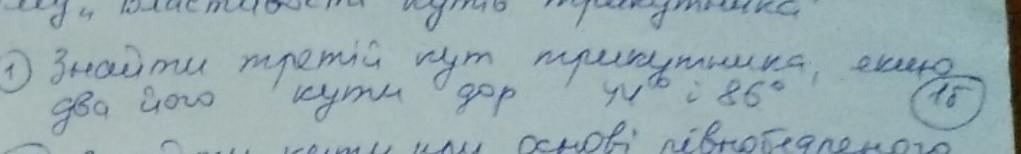 му„ властивості кутів трикутника
1) Знайти третій кут трикутника, якщо
два його кути дор 44° і 86° 1б
кути при основі рівнобедреного